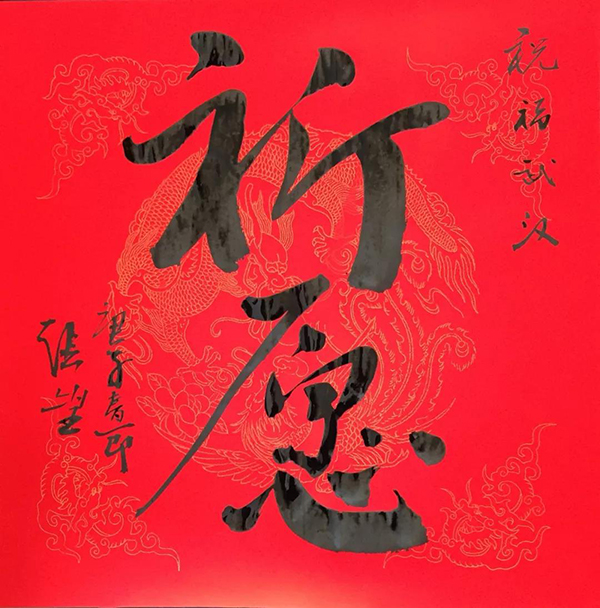 祝福武汉
祈愿
庚子春节
张望